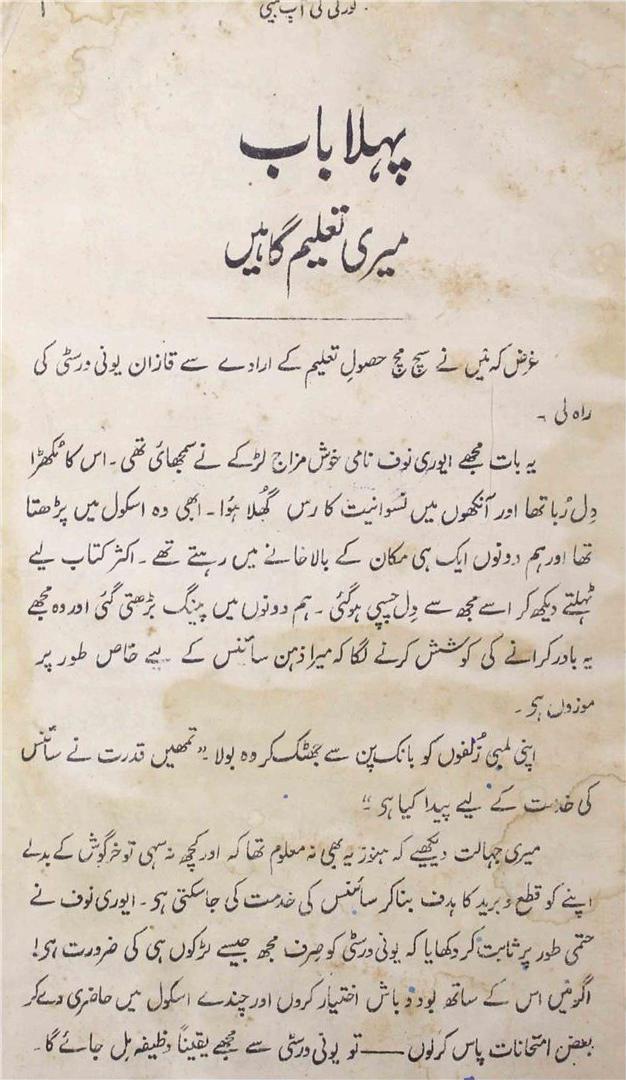 گورکی کی آپ بیتی ۱
پہلا باب
میری تعلیم گاہیں
غرض کہ مَیں نے سچ مچ حصولِ تعلیم کے ارادے سے قازان یونی ورسٹی کی
راہ لی ۔
یہ بات مجھے ایوری نوف نامی خوش مزاج لڑکے نے سمجھائی تھی ۔ اس کا مُکھڑا
دِل رُبا تھا اور آنکھوں میں نسوانیت کا رس گُھلا ہوُا ۔ ابھی وہ اسکول میں پڑھتا
تھا اور ہم دونوں ایک ہی مکان کے بالا خانے میں رہتے تھے ۔ اکثر کتاب لیے
ٹہلتے دیکھ کر اسے مجھ سے دِل چسپی ہو گئی ۔ ہم دونوں میں پینگ بڑھتی گئی اور وہ مجھے
یہ باور کرانے کی کوشش کرنے لگا کہ میرا ذہن سائنس کے لیے خاص طور پر
موزوں ہی ۔
اپنی لمبی زُلفوں کو بانک پن سے جھٹک کر وہ بولا ۔ ”تمھیں قدرت نے سائنس
کی خدمت کے لیے پیدا کیا ہی “
میری جہالت دیکھیے کہ ہنوز یہ بھی نہ معلوم تھا کہ اور کچھ نہ سہی تو خرگوش کے بدلے
اپنے کو قطع و برید کا ہدف بنا کر سائنس کی خدمت کی جا سکتی ہی ۔ ایوری نوف نے
حتمی طور پر ثابت کر دکھایا کہ یونی ورسٹی کو صِرف مجھ جیسے لڑکوں ہی کی ضرورت ہی!
اگر مَیں اس کے ساتھ بود و باش اختیار کروں اور چندے اسکول میں حاضری دے کر
بعض امتحانات پاس کرلوں —— تو یونی ورسٹی سے مجھے یقیناً وظیفہ مِل جائے گا ۔